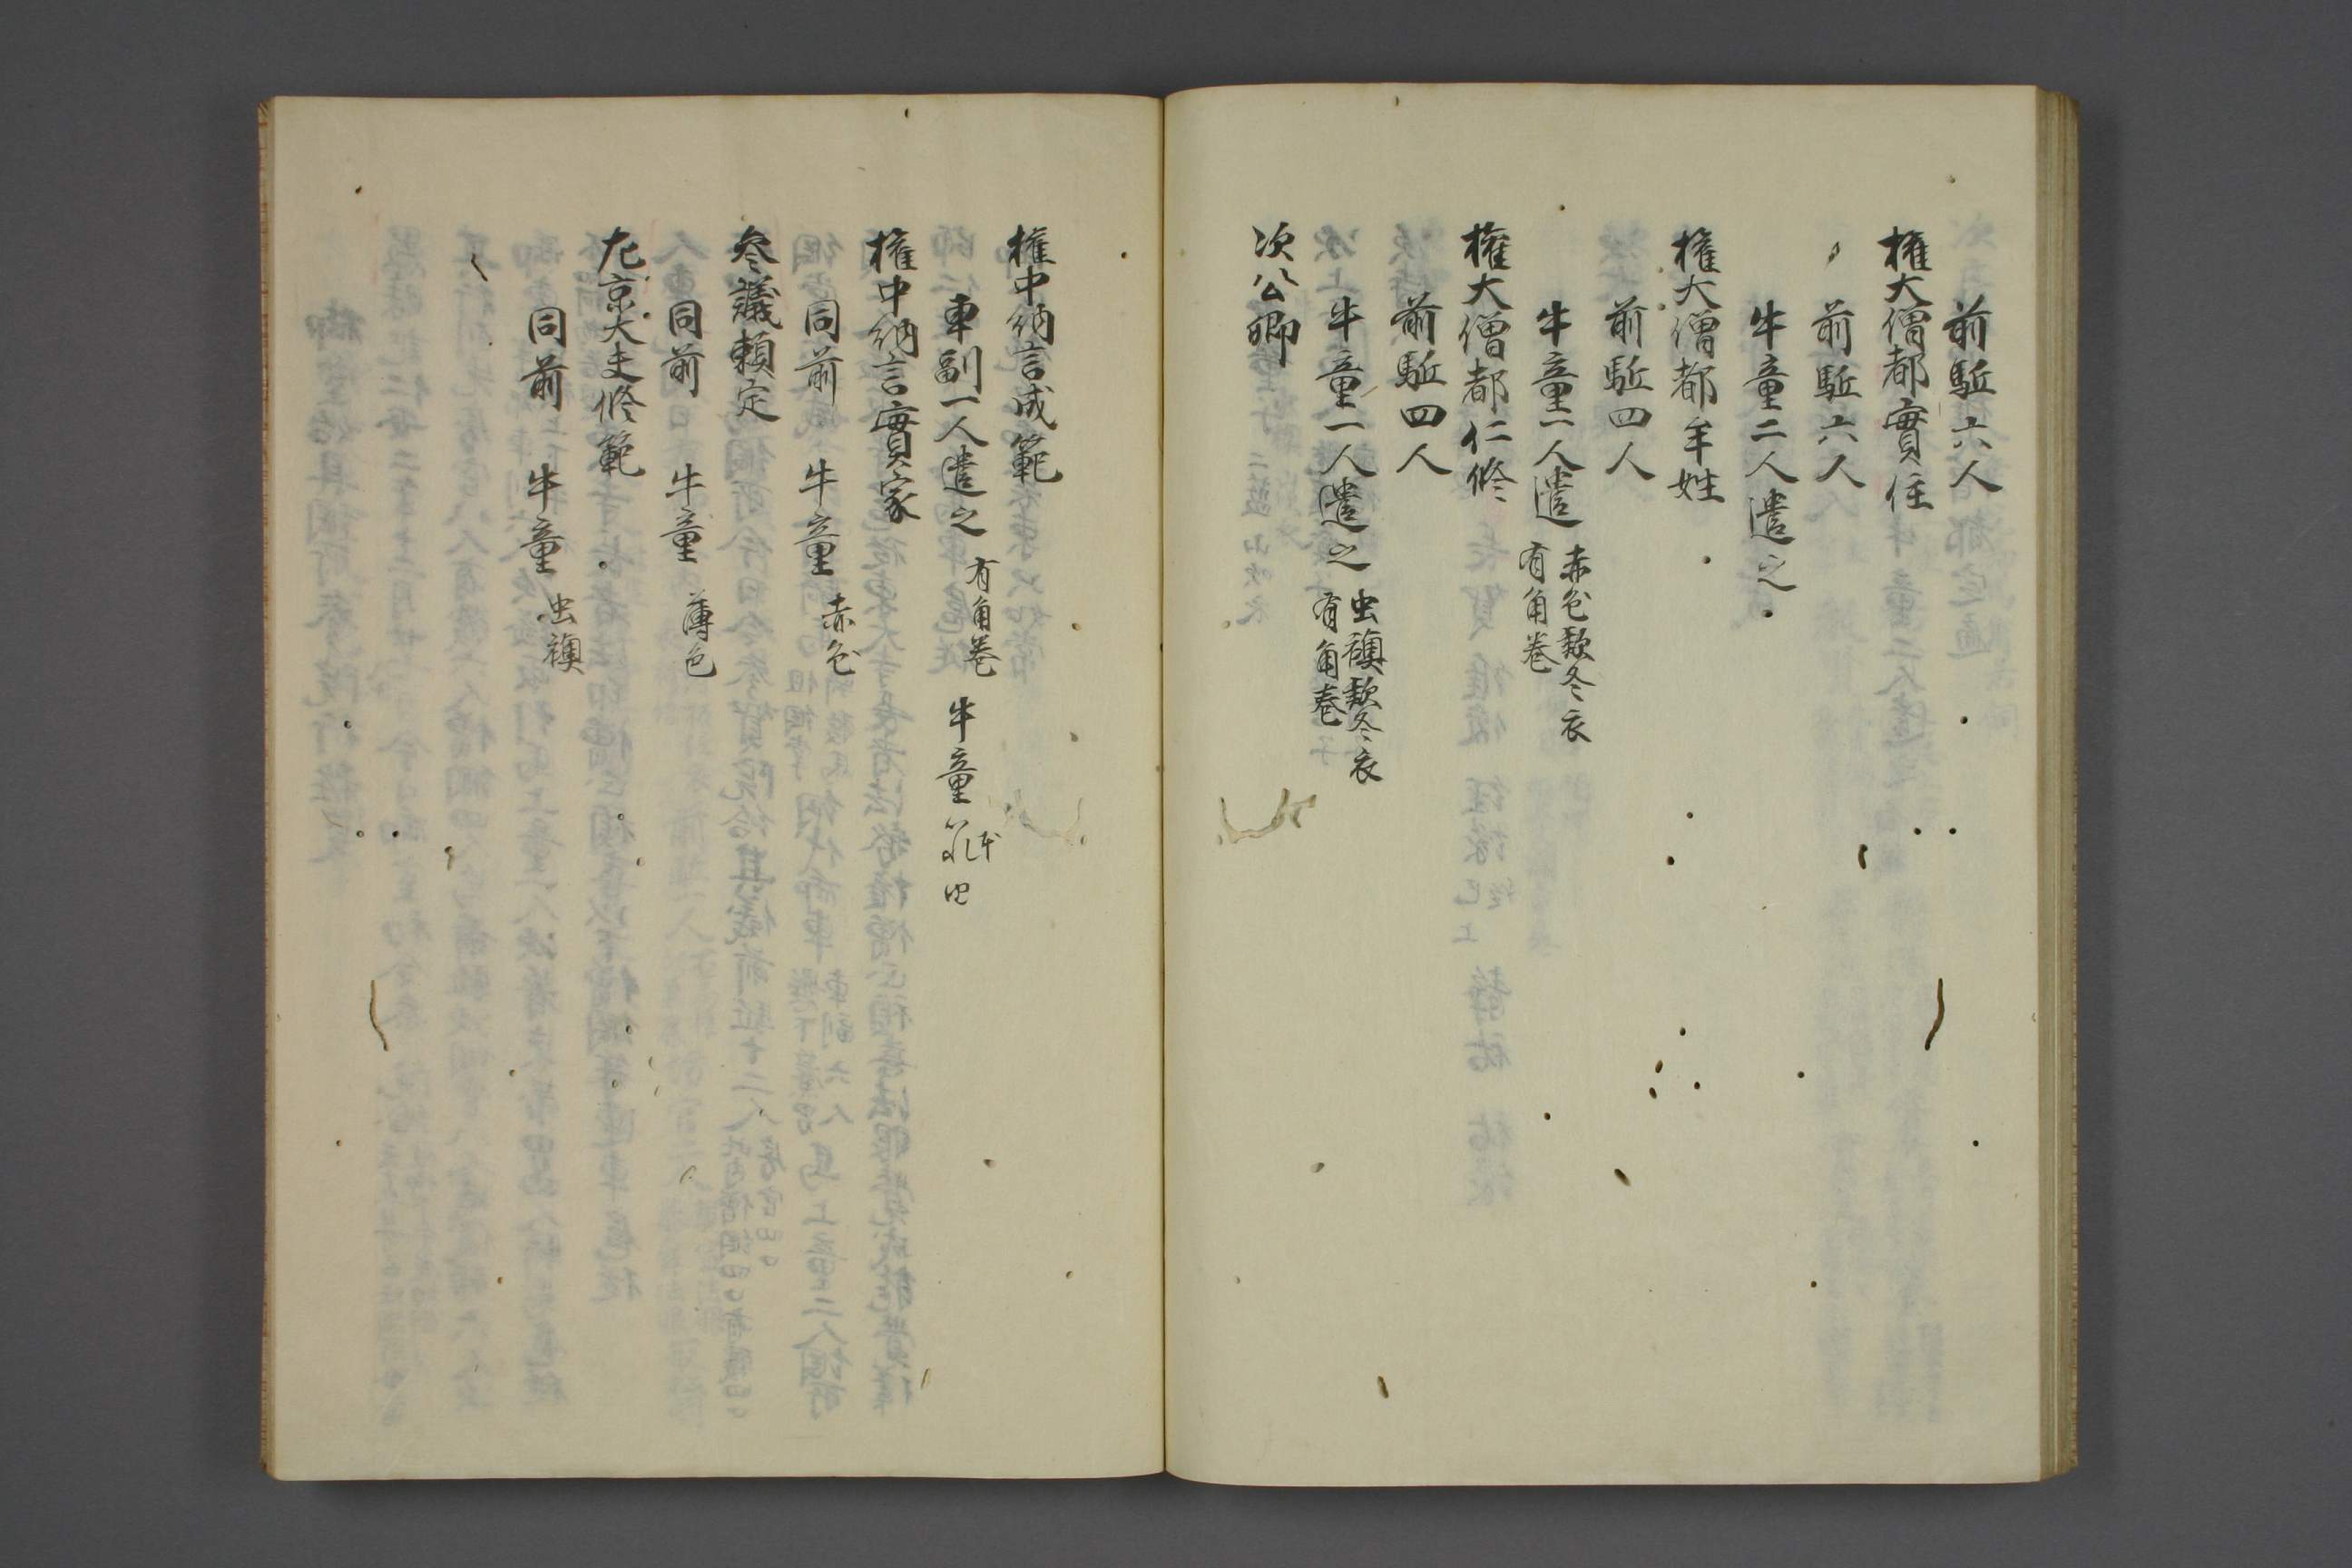 前駈六人
権大僧都實任
前駈六人
牛童二人遣之
権大僧都牟姓
前駈四人
牛童一人遣 赤色款冬衣
有角巻
権大僧都仁俢
前駈四人
牛童一人遣之 虫襖款冬衣
有角巻
次公卿
権中納言成範
車副一人遣之 有角巻 牛童
権中納言實家
同前 牛童 赤色
参議頼定
同前 牛童 薄色
左京大夫俢範
同前 牛童 虫襖